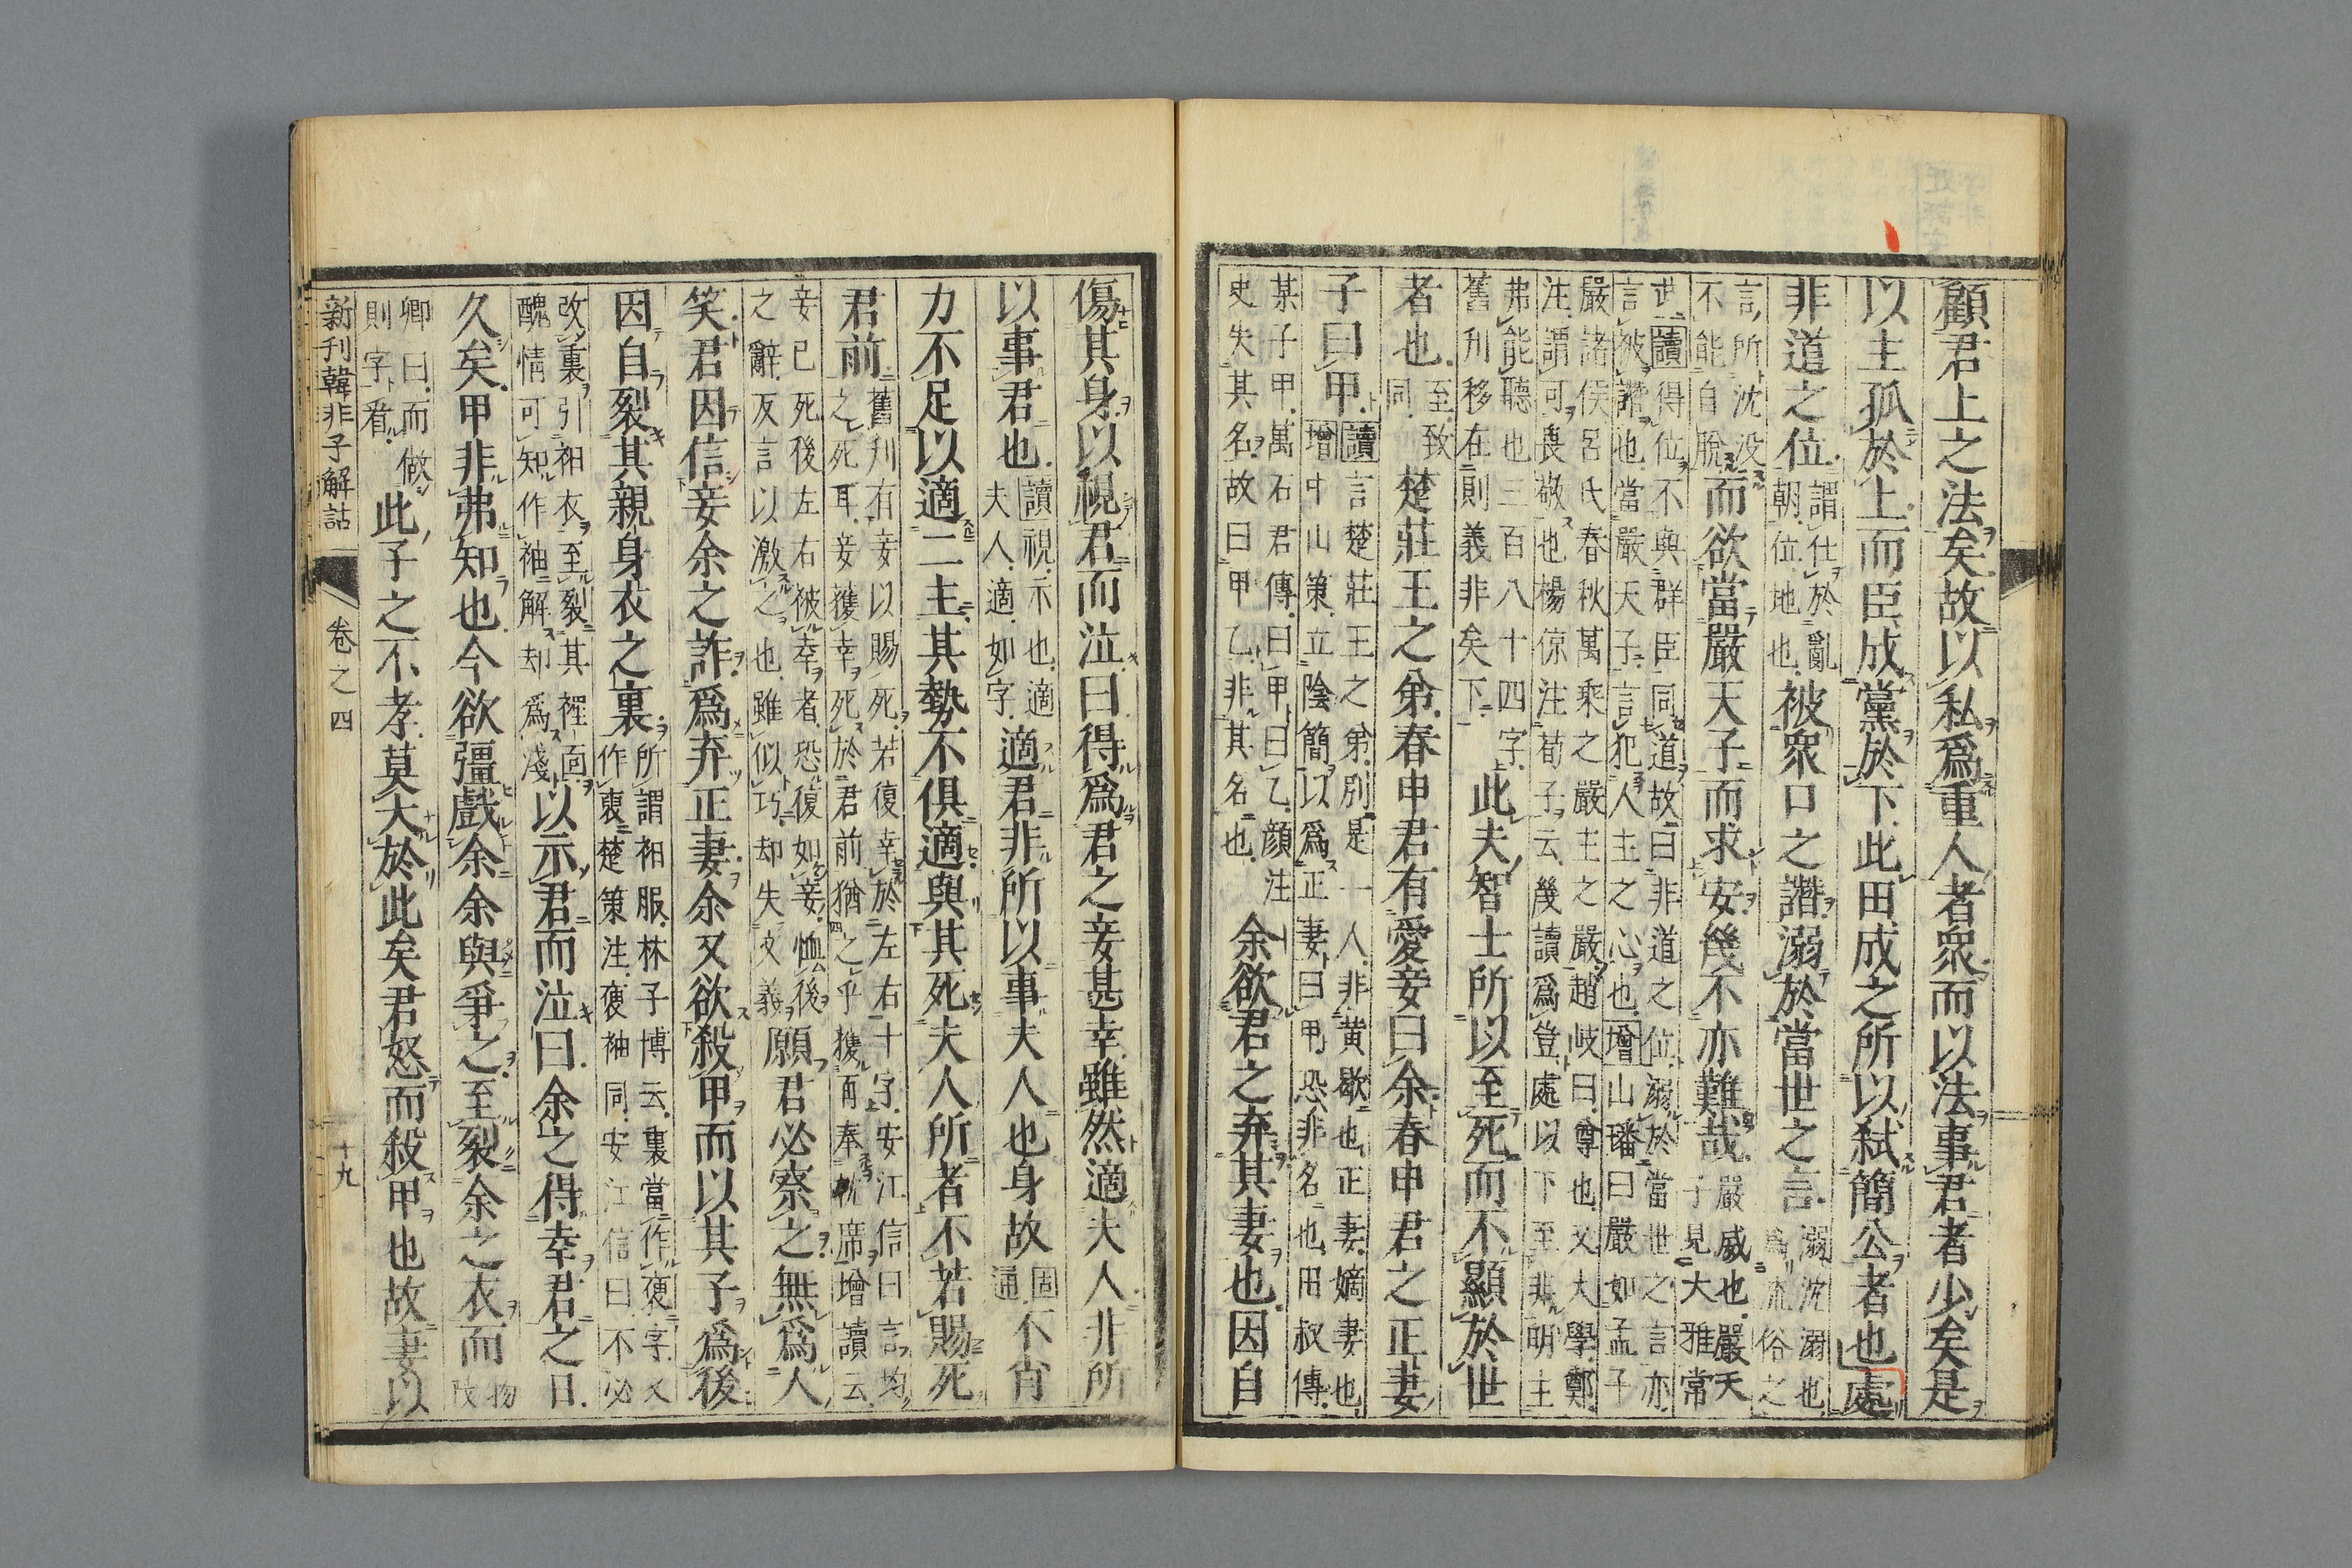 顧君上之法矣故以私爲重人者衆而以法事君者少矣是
以主孤於上而臣成黨於下此田成之所以弑簡公者也處
非道之位
謂仕於亂
朝位地也
被衆口之譖溺於當世之言
溺沈溺也
爲流俗之
言所沈没
不能自脫
而欲當嚴天子而求安幾不亦難哉
嚴威也嚴天
子見大雅常
武讀得位不與群臣同道故曰非道之位溺於當世之言亦
言被譖也當嚴天子言犯人主之心也增山璠曰嚴如孟子
嚴諸侯呂氏春秋萬乘之嚴主之嚴趙岐曰尊也又大學鄭
注謂可畏敬也楊倞注荀子云幾讀爲豈處以下至非明主
弗能聽也三百八十四字
舊刊移在則義非矣下
此夫智士所以至死而不顯於世
者也
至致
同
楚莊王之弟春申君有愛妾曰余春申君之正妻
子曰甲
讀言楚莊王之弟別是一人非黄歇也正妻嫡妻也
增中山策立陰簡以爲正妻曰甲恐非名也田叔傳
某子甲萬石君傳曰甲曰乙顔注
史失其名故曰甲乙非其名也
余欲君之弃其妻也因自
傷其身以視君而泣曰得爲君之妾甚幸雖然適夫人非所
以事君也
讀視示也適
夫人適如字
適君非所以事夫人也身故
固
通
不肖
力不足以適二主其勢不俱適與其死夫人所者不若賜死
君前
舊刋有妾以賜死若復幸於左右十字安江信曰言均
之死耳妾獲幸死於君前猶之乎獲再奉枕席增讀云
妾已死後左右彼幸者恐復如妾恤後
之辭反言以激之也雖似巧却失文義
願君必察之無爲人
笑君因信妾余之詐爲弃正妻余又欲殺甲而以其子爲後
因自裂其親身衣之裏
所謂衵服林子博云裏當作褏字又
作褎楚策注褏袖同安江信曰不必
改裏引衵衣至裂其裡面
醜情可知作袖解却爲淺
以示君而泣曰余之得幸君之日
久矣甲非弗知也今欲彊戲余余與爭之至裂余之衣而
物
改
卿曰而做
則字看
此子之不孝莫大於此矣君怒而殺甲也故妻以
新刊韓非子解詁
卷之四
十九